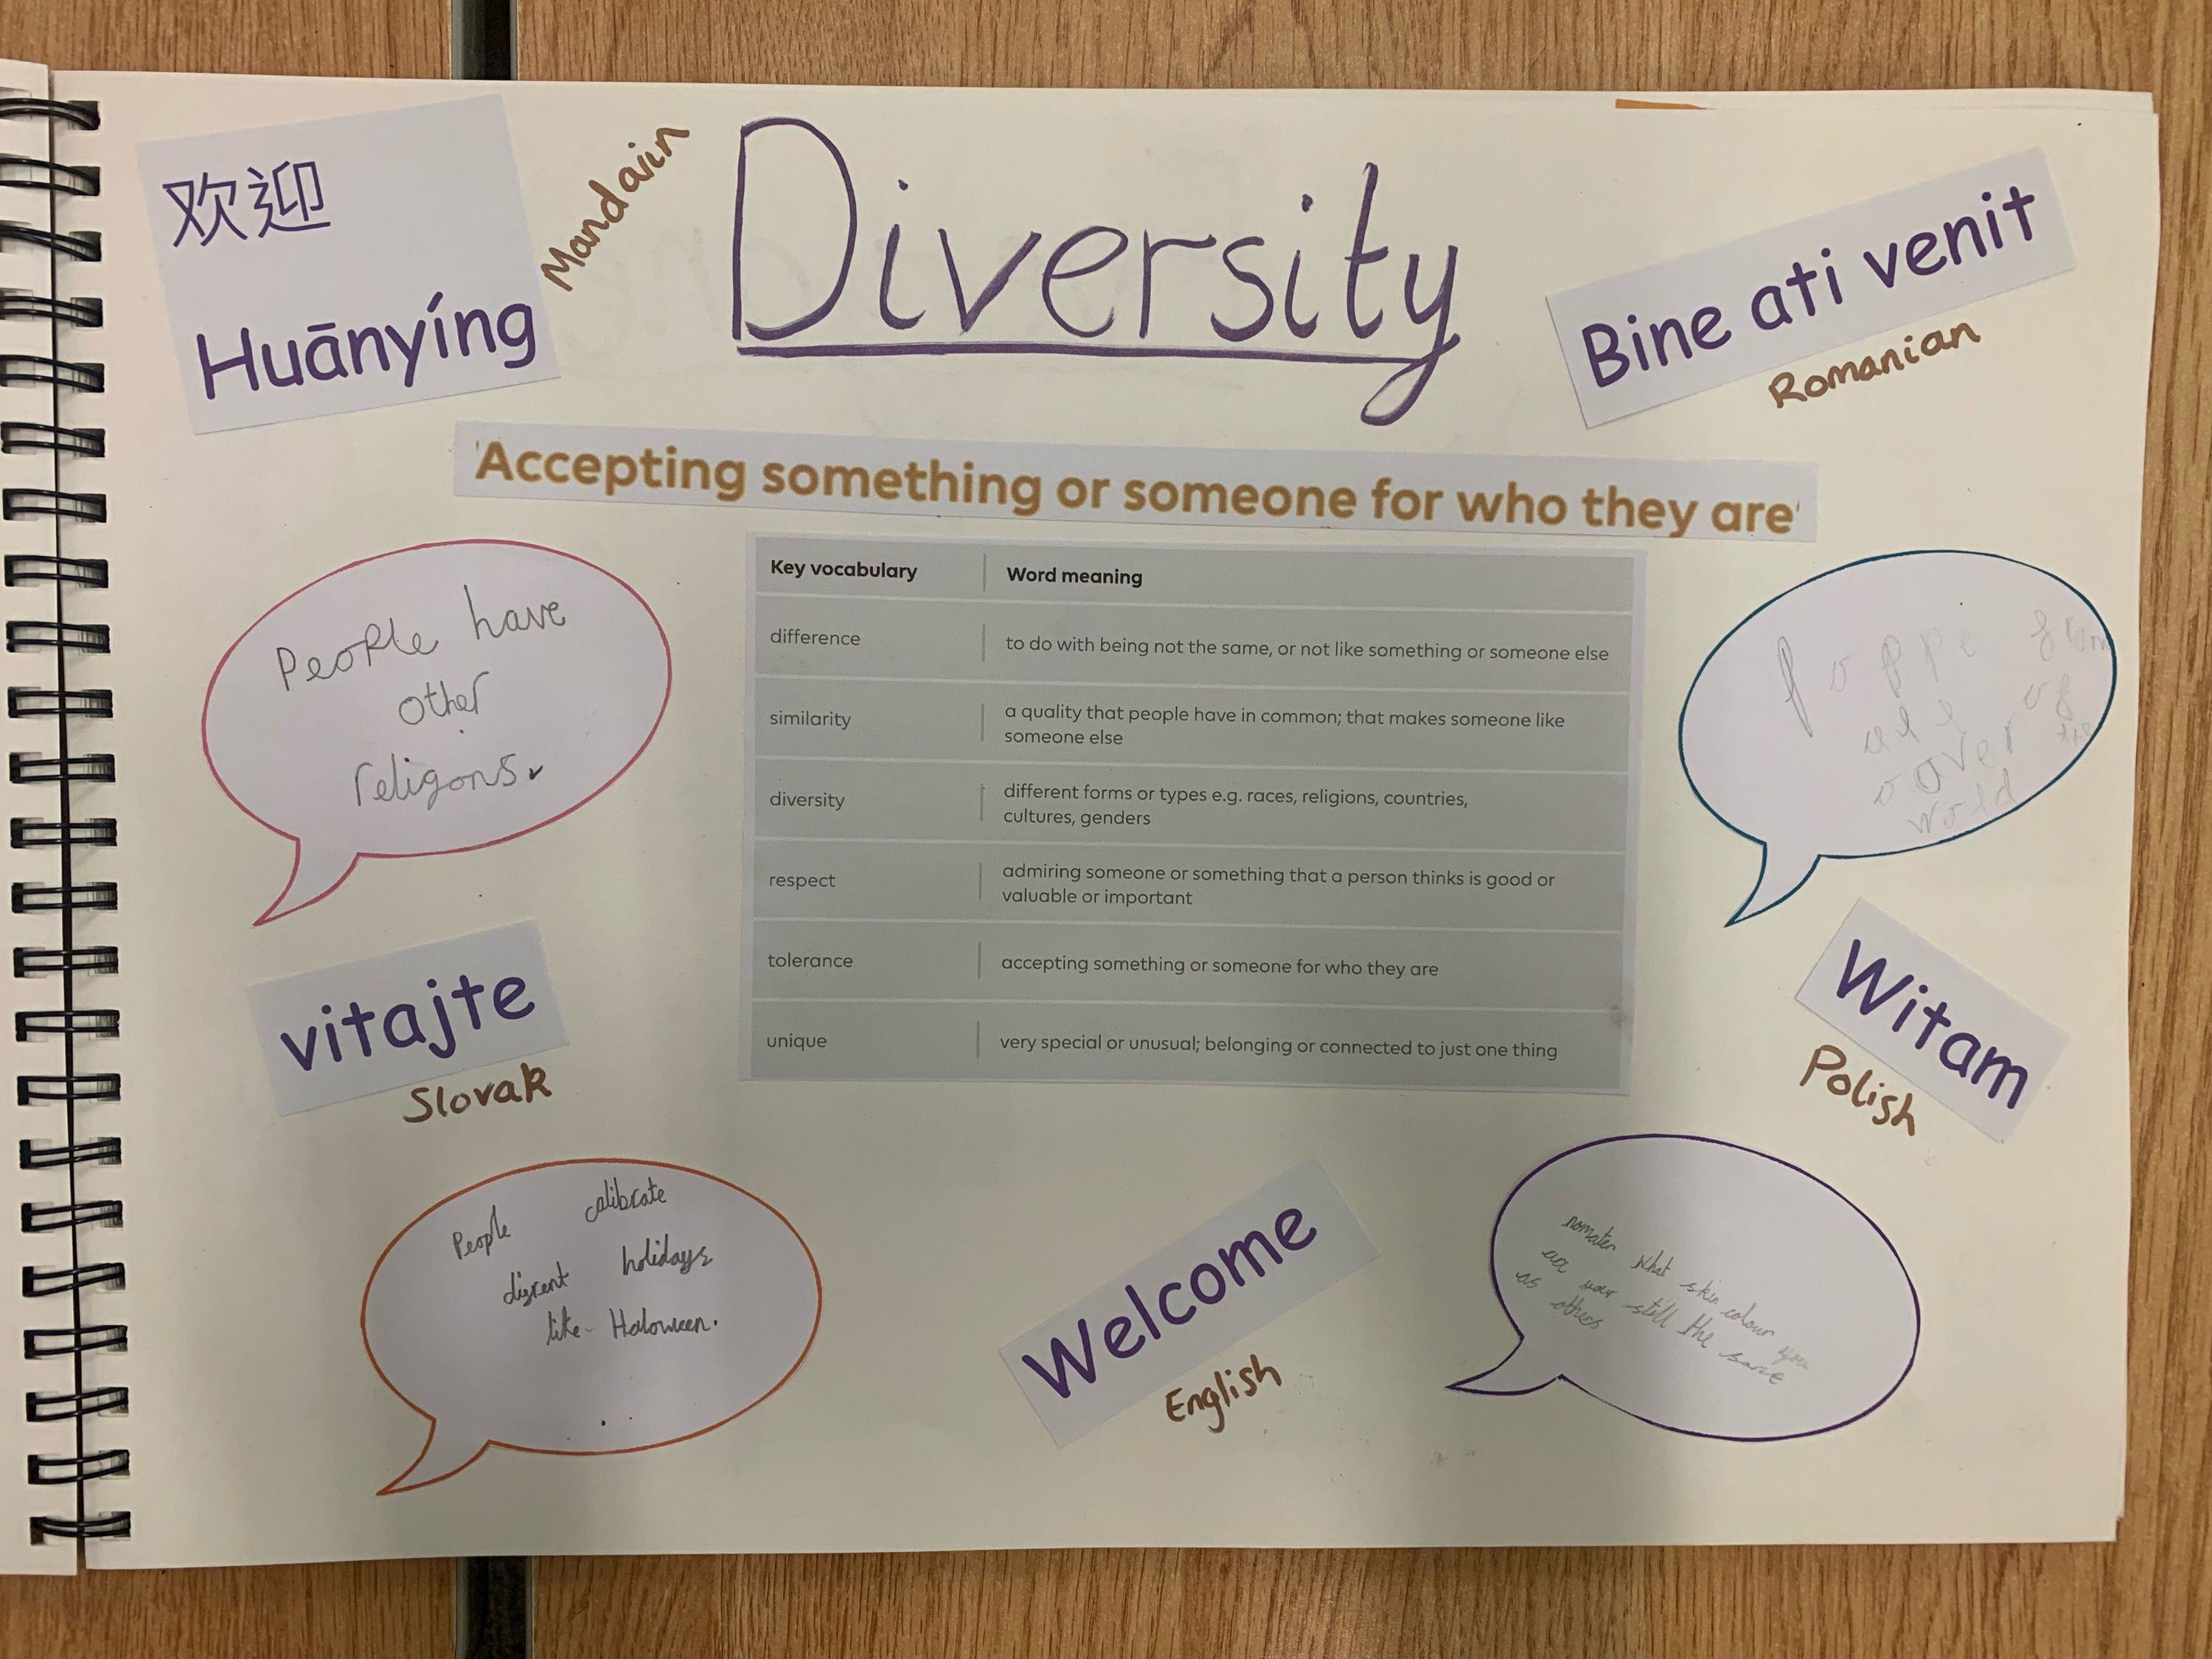 欢迎
Huānyíng
Mandairin
Diversity
Bine ati venit
Romanian
'Accepting something or someone for who they are'
People have
other
religons.
Key vocabulary Word meaning
difference to do with being not the same, or not like something or someone else
similarity a quality that people have in common; that makes someone like
someone else
diversity different forms or types e.g. races, religions, countries,
cultures, genders
respect admiring someone or something that a person thinks is good or
valuable or important
tolerance accepting something or someone for who they are
unique very special or unusual; belonging or connected to just one thing
from
of
world
vitajte
Slovak
Witam
Polish
People calibrate
holidays
like Haloween.
Welcome
English
nomater what skin colour you
are your still the same
as others